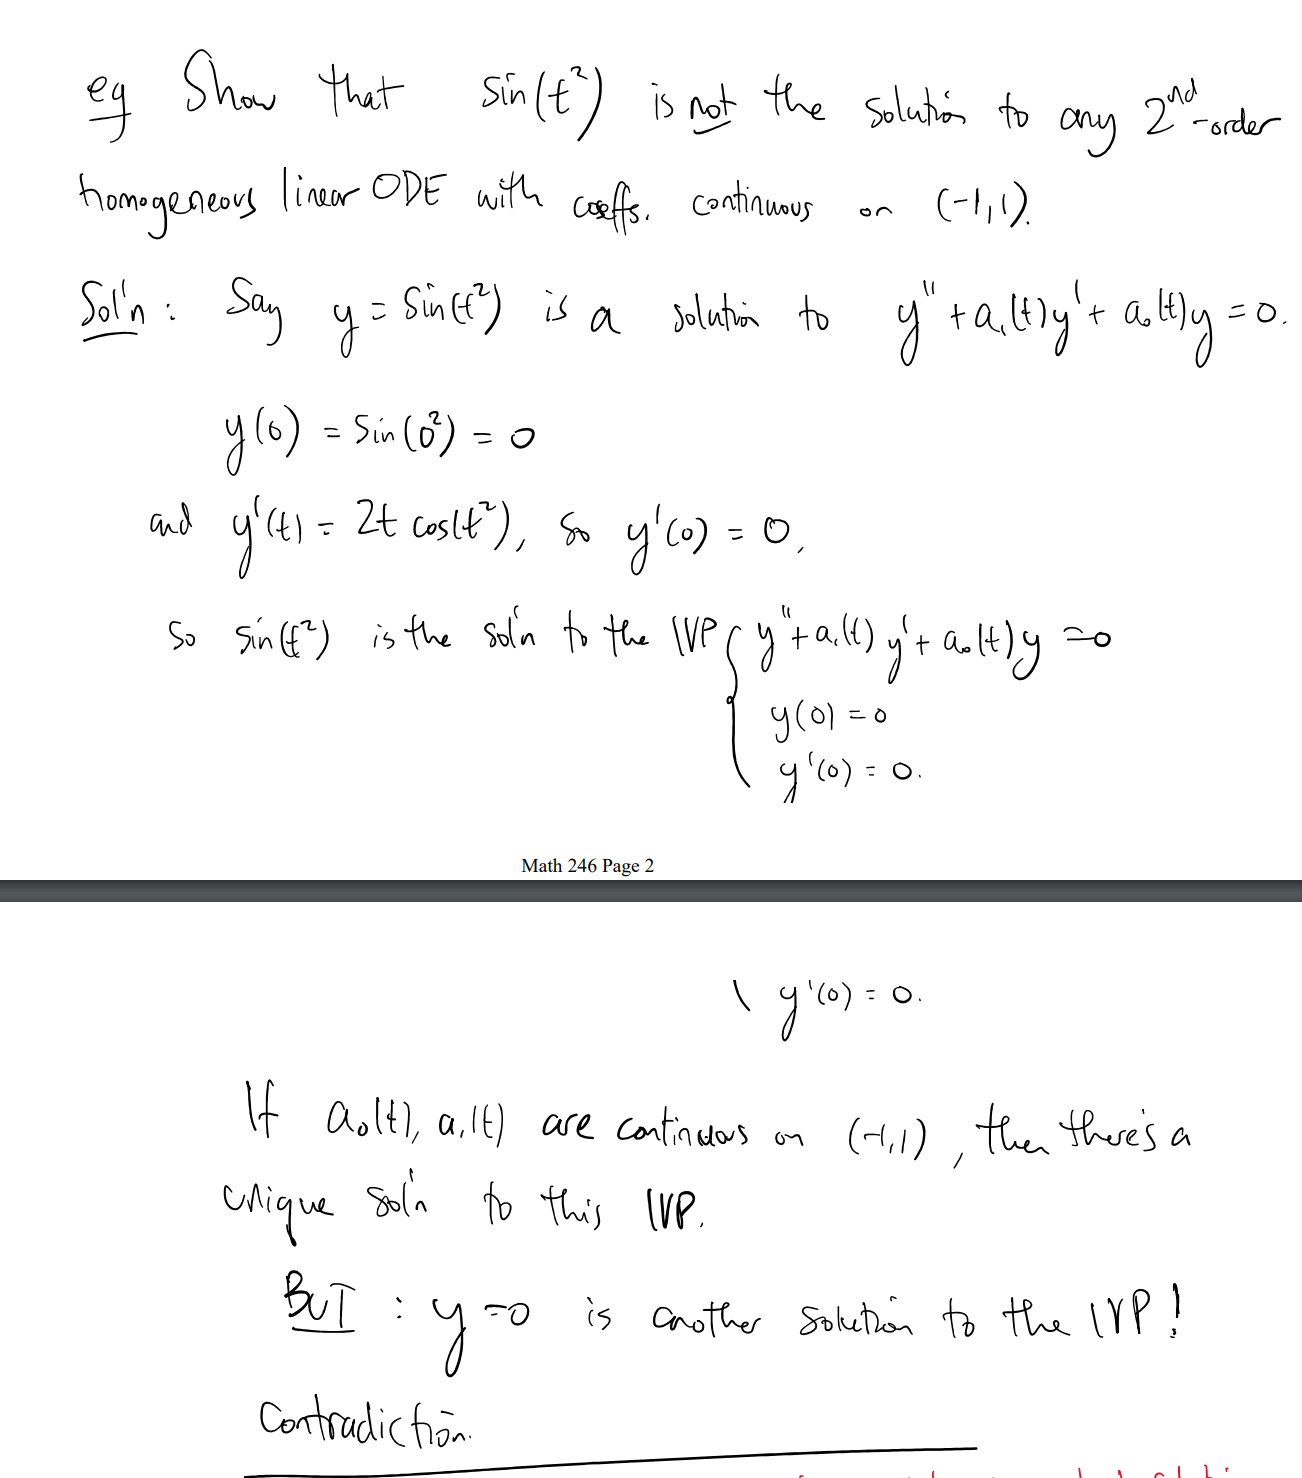 eg Show that sin(t²) is not the solution to any 2nd-order
homogeneous linear ODE with coeffs. continuous on (-1,1).
Sol'n: Say y = sin(t²) is a solution to y'' + a₁(t)y' + a₀(t)y = 0.
y(0) = sin(0²) = 0
and y'(t) = 2t cos(t²), so y'(0) = 0,
so sin(t²) is the sol'n to the IVP { y'' + a₁(t) y' + a₀(t)y = 0
y(0) = 0
y'(0) = 0.
Math 246 Page 2
y'(0) = 0.
If a₀(t), a₁(t) are continuous on (-1,1), then there's a
unique sol'n to this IVP.
BUT : y=0 is another solution to the IVP!
Contradiction.